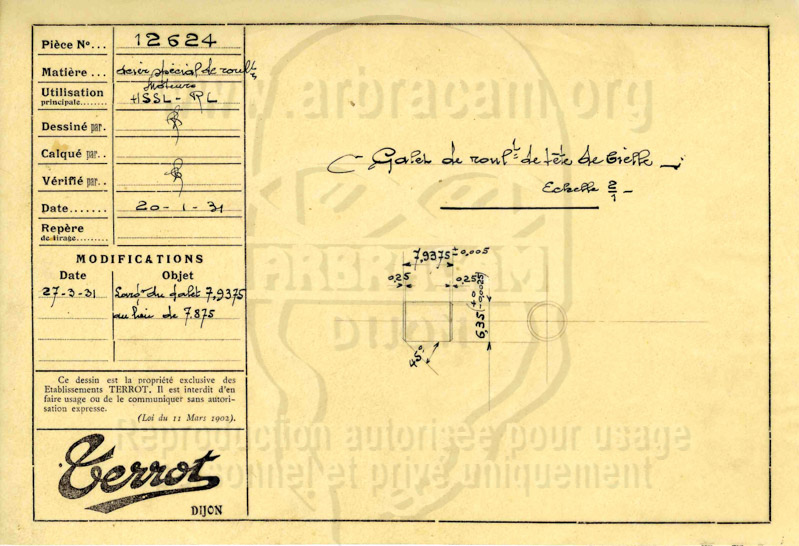 Pièce Nº... 12624
Matière ... acier spécial de roult
Utilisation principale........ Moteurs
HSSL - RL
Dessiné par.
Calqué par..
Vérifié par.
Date....... 20-1-31
Repère de tirage........
MODIFICATIONS
Date Objet
27-3-31 Largr du galet 7,9375
au lieu de 7.875
Ce dessin est la propriété exclusive des
Etablissements TERROT. Il est interdit d'en
faire usage ou de le communiquer sans autori-
sation expresse.
(Loi du 11 Mars 1902).
Terrot
DIJON
Galet de roult de tête de bielle
Echelle 2/1
7,9375 ± 0,005
0,25 0,25
6,35 +0 -0,0025
45°
www.arbracam.org
ARBRACAM
DIJON
Reproduction autorisée pour usage
personnel et privé uniquement